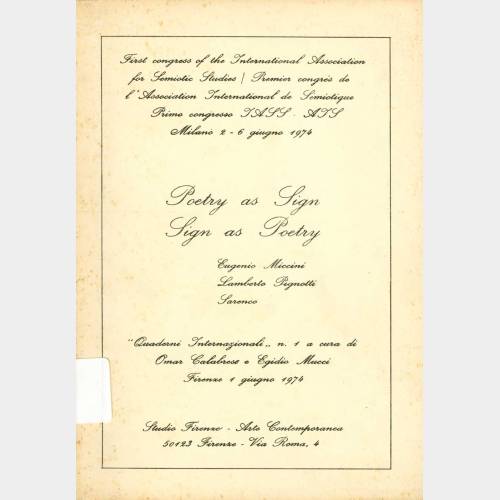 First congress of the International Association
for Semiotic Studies / Premier congrès de
l'Association International de Semiotique
Primo congresso IASS - AIS
Milano 2 - 6 giugno 1974
Poetry as Sign
Sign as Poetry
Eugenio Miccini
Lamberto Pignotti
Sarenco
"Quaderni Internazionali„ n. 1 a cura di
Omar Calabrese e Egidio Mucci
Firenze 1 giugno 1974
Studio Firenze - Arte Contemporanea
50123 Firenze - Via Roma, 4